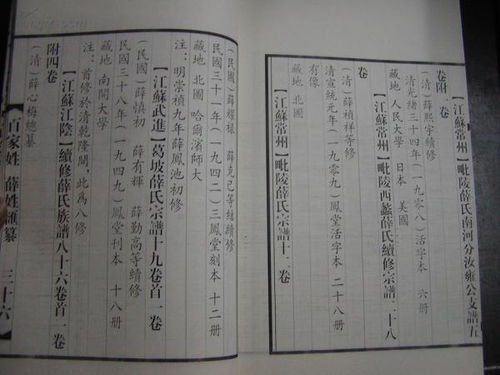 【江蘇常州】毗陵薛氏南河分汝雍公支譜五
卷附一卷
(清)薛熙宇續修
清光緒三十四年(一九〇八)活字本 六册
藏地 人民大學 日本 美國
【江蘇常州】毗陵西蠡薛氏續修宗譜二十八
卷
(清)薛禎祥等修
清宣統元年(一九〇九)鳳堂活字本 二十八册
有像
藏地 北圖
【江蘇常州】毗陵薛氏宗譜十二卷
(民國)薛耀禄 薛克己等續修
民國三十一年(一九四二)三鳳堂刻本 十二册
藏地 北圖 哈爾濱師大
注:明崇禎九年薛鳳池初修
【江蘇武進】葛坡薛氏宗譜十九卷首一卷
(民國)薛慎初 薛有禪 薛勤高等續修
民國三八年(一九四九)鳳堂刊本 十八册
藏地 南開大學
注:首修於清乾隆間,此爲八修
【江蘇江陰】續修薛氏族譜八十六卷首一卷
附四卷
(清)薛心梅總纂
百家姓 薛姓匯纂 三十六